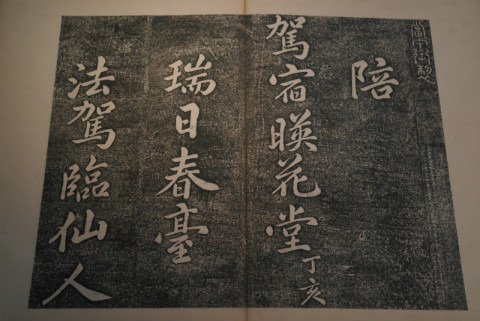 陪
駕宿暎花堂丁亥
瑞日春臺
法駕臨仙人